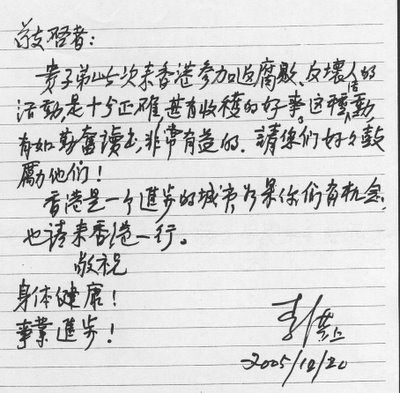 敬啓者:
貴子弟此次来香港参加反腐敗、反壞人的
活動,是十分正確,甚有收穫的好事。这種活動,
有如勤奮讀书,非常有益的。請你們好好鼓
勵他们!
香港是一个進步的城市,如果你们有机会,
也請来香港一行。
敬祝
身体健康!
事業進步!
李
2005/12/20